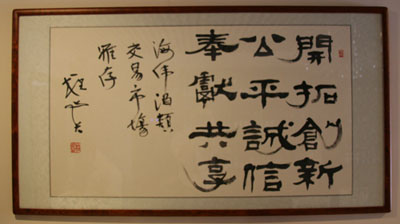 開拓創新
公平誠信
奉獻共享
交易市場
雅存